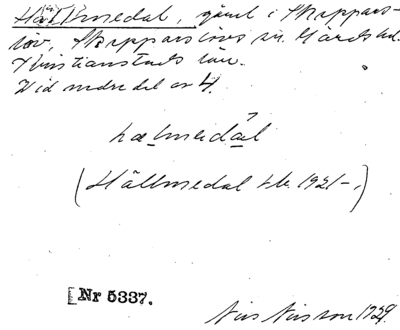 Hällmedal, gård i Skippars-
löv, Skipparslövs sn. Gärds hd.
Kristianstads län.
Vid nedre del av 4.
hælmedal
(Hällmedal tlr. 1921-,)
[Nr 5337.
Nils Nilsson 1929.